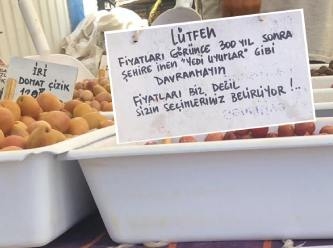 LÜTFEN
FİYATLARI GÖRÜNCE 300 YIL SONRA
ŞEHİRE İNEN "YEDİ UYURLAR" GİBİ
DAVRANMAYIN
FİYATLARI BİZ DEĞİL
SİZİN SEÇİMLERİNİZ BELİRLİYOR !..
İRİ
DOMAT ÇİZİK